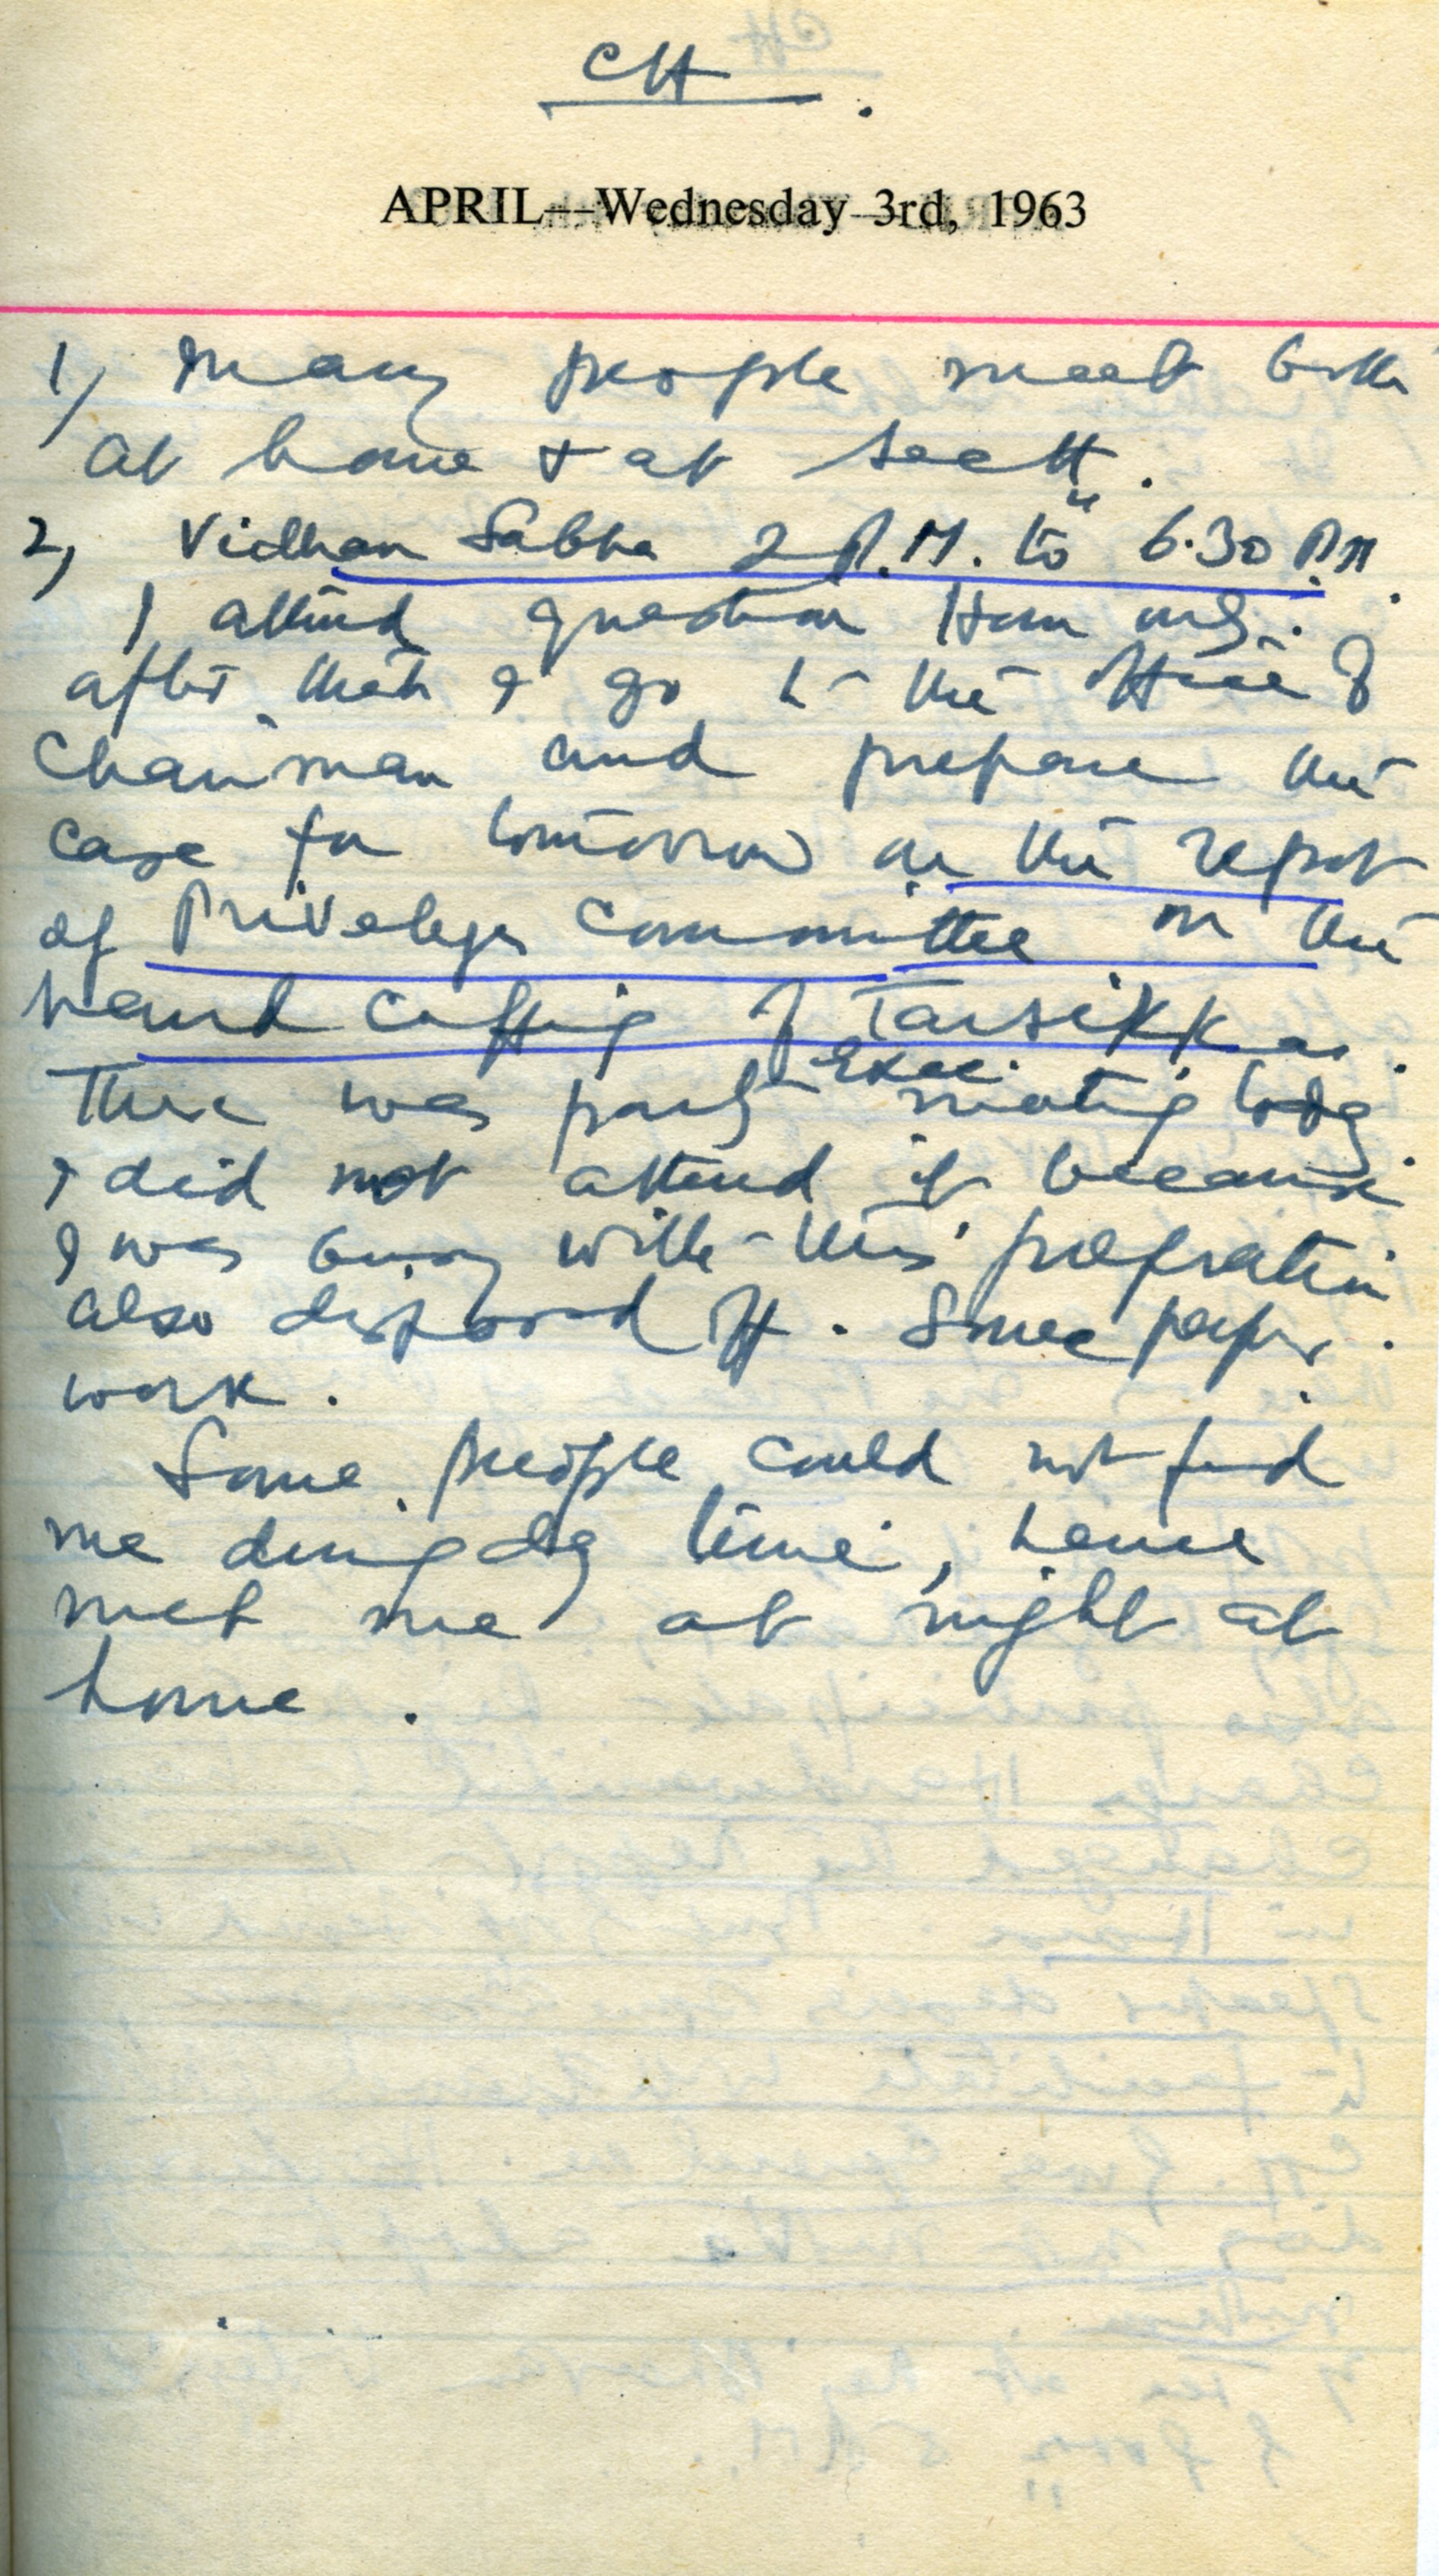 CH.
APRIL—Wednesday 3rd, 1963
1) Many people meet both
at home & at sectt.
2) Vidhan Sabha 2 P.M. to 6.30 P.M.
I attend question Hour only.
after that I go to the office of
Chairman and prepare the
case for tomorrow on the report
of Privelege Committee on the
hand cuffing of Tarsikka.
There was party Exec. meeting today
I did not attend it because
I was busy with this prepration
also disposed off. Some paper
work.
Some people could not find
me during day time, hence
met me at night at
home.